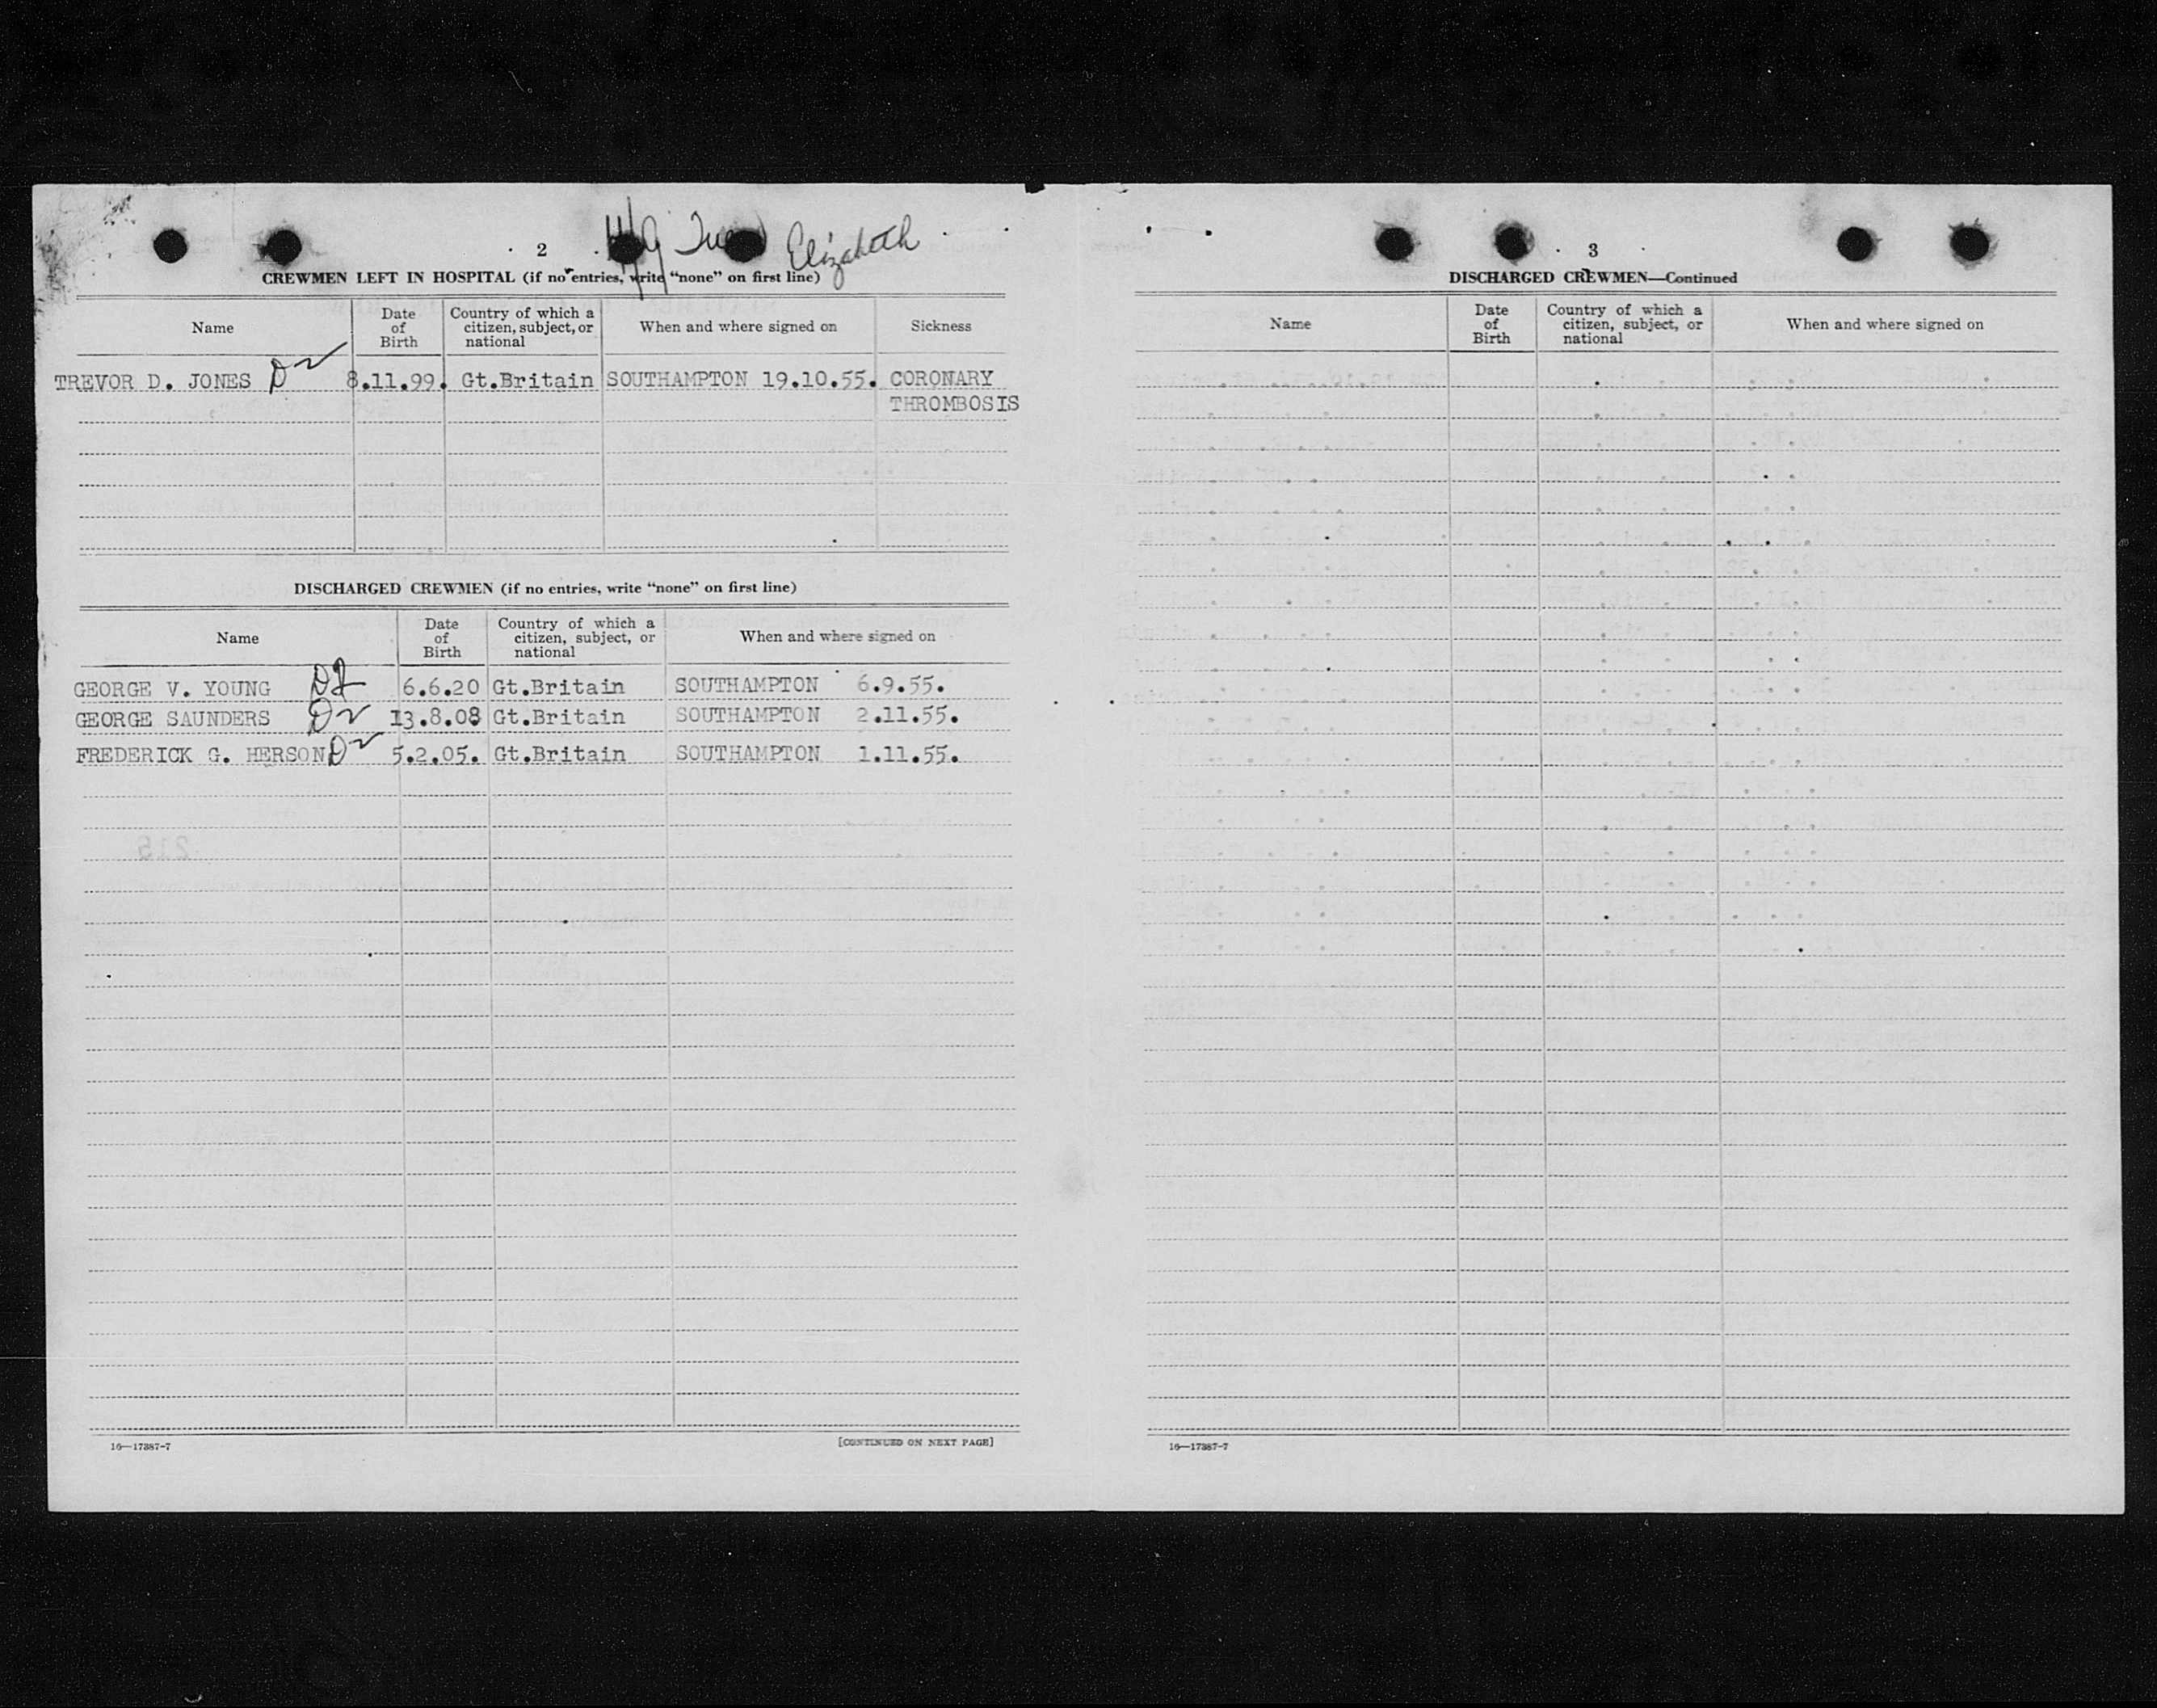 2
Elizabeth
CREWMEN LEFT IN HOSPITAL (if no entries, write “none” on first line)
Name Date of Birth Country of which a citizen, subject, or national When and where signed on Sickness
TREVOR D. JONES 8.11.99. Gt.Britain SOUTHAMPTON 19.10.55. CORONARY
THROMBOSIS
DISCHARGED CREWMEN (if no entries, write “none” on first line)
Name Date of Birth Country of which a citizen, subject, or national When and where signed on
GEORGE V. YOUNG 6.6.20 Gt.Britain SOUTHAMPTON 6.9.55.
GEORGE SAUNDERS 13.8.08 Gt.Britain SOUTHAMPTON 2.11.55.
FREDERICK G. HERSON 5.2.05. Gt.Britain SOUTHAMPTON 1.11.55.
16—17387-7 [CONTINUED ON NEXT PAGE]
3
DISCHARGED CREWMEN—Continued
Name Date of Birth Country of which a citizen, subject, or national When and where signed on
16—17387-7